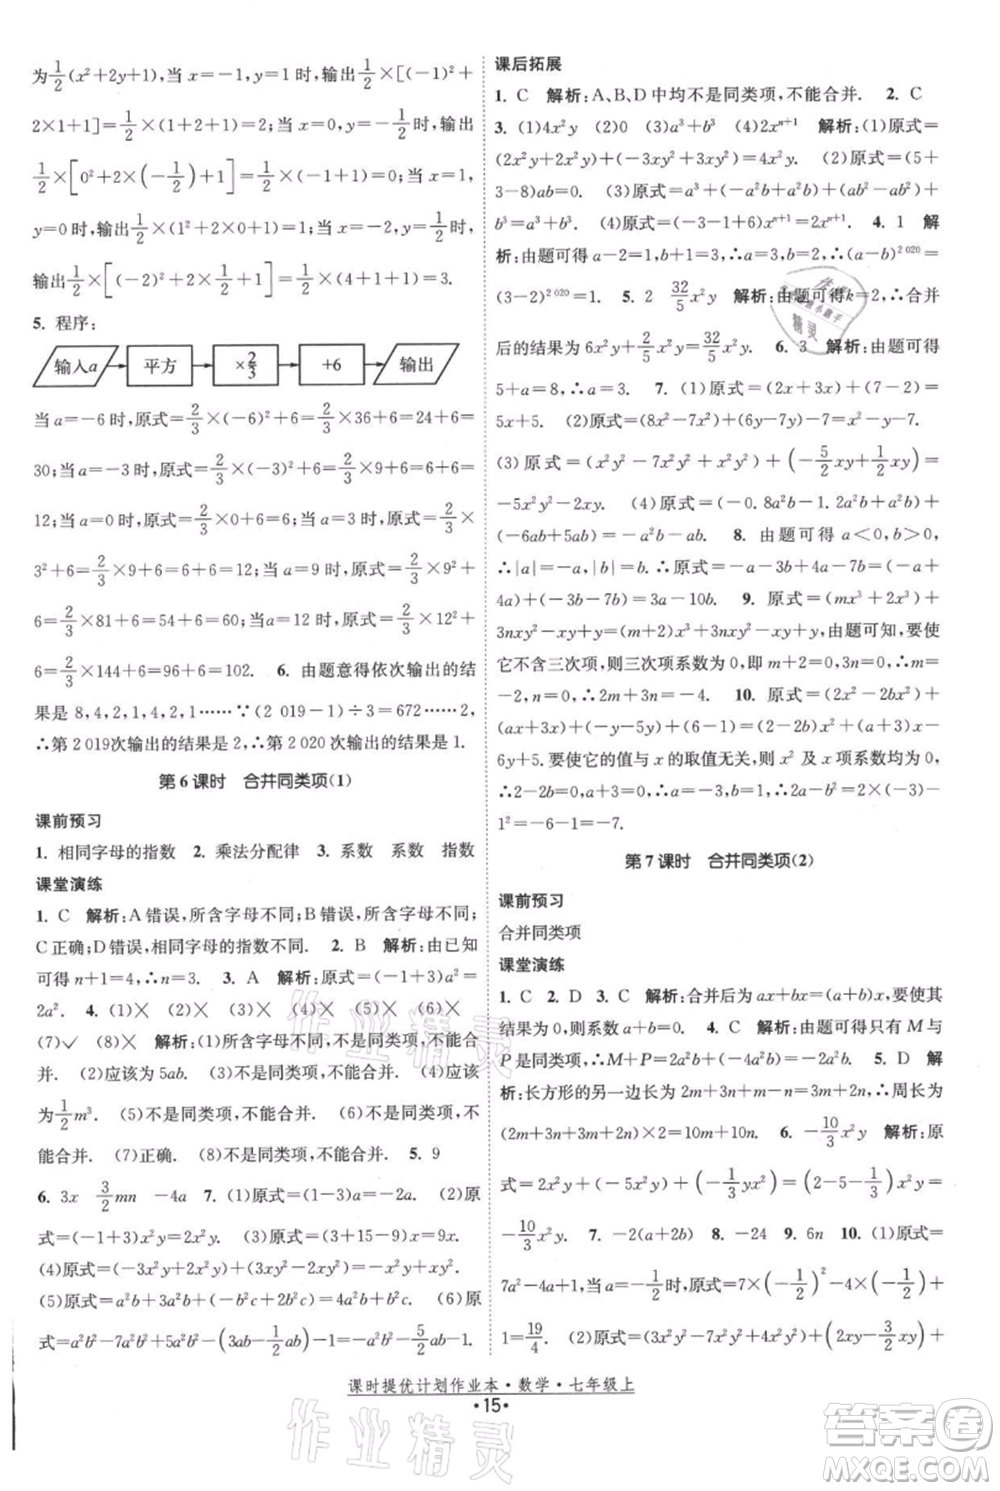 为1/2(x²+2y+1),当 x=-1,y=1时,输出1/2×[(-1)²+
2×1+1]=1/2×(1+2+1)=2;当 x=0,y=-1/2时,输出
1/2×[0²+2×(-1/2)+1]=1/2×(-1+1)=0;当 x=1,
y=0时,输出1/2×(1²+2×0+1)=1;当 x=-2,y=1/2时,
输出1/2×[(-2)²+2×1/2+1]=1/2×(4+1+1)=3.
5. 程序:
输入a 平方 ×2/3 +6 输出
当 a=-6 时,原式=2/3×(-6)²+6=2/3×36+6=24+6=
30;当 a=-3 时,原式=2/3×(-3)²+6=2/3×9+6=6+6=
12;当 a=0 时,原式=2/3×0+6=6;当 a=3 时,原式=2/3×
3²+6=2/3×9+6=6+6=12;当 a=9 时,原式=2/3×9²+
6=2/3×81+6=54+6=60;当 a=12 时,原式=2/3×12²
+6=2/3×144+6=96+6=102. 6. 由题意得依次输出的结
果是 8,4,2,1,4,2,1,4,2,1……∵(2 019-1)÷3=672……2,
∴第 2 019次输出的结果是 2,∴第 2 020 次输出的结果是 1.
第 6 课时 合并同类项(1)
课前预习
1. 相同字母的指数 2. 乘法分配律 3. 系数 系数 指数
课堂演练
1. C 解析:A错误,所含字母不同;B错误,所含字母不同;
C正确;D错误,相同字母的指数不同. 2. B 解析:由已知
可得 n+1=4,∴n=3. 3. A 解析:原式=(-1+3)a²=
2a². 4. (1)× (2)× (3)× (4)× (5)× (6)×
(7)✓ (8)× 解析:(1)不是同类项,不能合并;正确答案为
3x+3y. (2)应该为 5ab. (3)不是同类项,不能合并. (4)应该
为1/2m³. (5)不是同类项,不能合并. (6)不是同类项,不
能合并. (7)正确. (8)不是同类项,不能合并. 5. 9
6. 3x 3/2mn -4a 7. (1)原式=(-4+2)a=-2a. (2)原
式=(-1+3)x²y=2x²y. (3)原式=(15-9)xy=6xy.
(4)原式=(-3x²y+3x²y)+(2xy²-2xy²)=0.
(5)原式=a²b²+(-ab+3ab+2ab)=4ab+a²b². (6)原
式=a²b²-7a²b²+(3ab-1/2ab)-1=-6a²b²+5/2ab-1.
课后拓展
1. C 解析:A、B、D 中均不是同类项,不能合并. 2. C
3. (1)4x²y (2)0 (3)a³+b³ (4)2xⁿ⁺¹ 解析:(1)原式=
(2x²y+x²y+x²y)=(2+1+1)x²y=4x²y. (2)原式=(5+
3-8)ab=0. (3)原式=a³+(-a²b+a²b)+(ab²-ab²)+
b³=a³+b³. (4)原式=(-3-1+6)xⁿ⁺¹=2xⁿ⁺¹. 4. 1 解
析:由题可得:a-1=2,b=1+1,∴a=3,b=2,∴(a-b)²⁰²⁰=
(3-2)²⁰²⁰=1. 5. 2 32/5x²y 解析:由题可得k=2,∴合并
后的结果为 6x²y+2/5x²y=32/5x²y. 6. 3 解析:由题可得
5+a=8,∴a=3. 7. (1)原式=(2x+3x)+(2+3)=
5x+5. (2)原式=(8x²-7x²)+(6y-7y)-7=x²-y-7.
(3)原式=(x²y²-7x²y²+x²y²)+(-5/2xy+1/2xy)=
-5x²y²-2xy. (4)原式=(-0.8a²b-1.2a²b+a²b)+
(-6ab+5ab)=-a²b-ab. 8. 由题可得 a<0,b>0,
∴|a|=-a,|b|=b,∴原式=-7a+3a-10b=
-4a-10b. 9. 原式=(mx³+2x³)+(3nxy²+
3nxy²-xy²)+y=(m+2)x³+(3n-1)xy²+y,要使
它不含三次项,则三次项系数为 0,即 m+2=0,3n-1=0,∴m=
-2,n=1/3,∴2m+3n=-4+1=-3. 10. 原式=(2x²-
2bx²)+(ax+x)+(-5y-y)+(6-1)=(2-2b)x²+(a+
1)x-6y+5,要使结果与 x 取值无关,则 x² 与 x 的系数为 0,
∴2-2b=0,a+1=0,∴a=-1,b=1,∴6a-b²=6×(-
1)-1²=-6-1=-7.
第 7 课时 合并同类项(2)
课前预习
合并同类项
课堂演练
1. C 2. D 3. C 解析:合并后为 ax+bx=(a+b)x,要使其
结果为0,则系数 a+b=0. 4. C 解析:由题可得只有 M 与
P 是同类项,∴M+P=2a²b+a²b=3a²b. 5. D 解
析:长方形的另一边长为 2m+3n+m=3m+3n,∴周长为
(2m+3n+3m+3n)×2=10m+12n. 6. -10/3x²y 解析:原
式=2x²y-5x²y-1/3x²y=(2-5-1/3)x²y=
-10/3x²y. 7. -2 8. -24 9. 6n 10. (1)原式=
7a²-4a+1,当 a=-1/2时,原式=7×(-1/2)²-4×(-1/2)+
1=19/4. (2)原式=(3x²y²-7x²y²)+(-1/2xy+3/2xy)+
课时提优计划作业本·数学·七年级上
·15·
作业精灵
作业精灵
答案圈
MXQE.COM